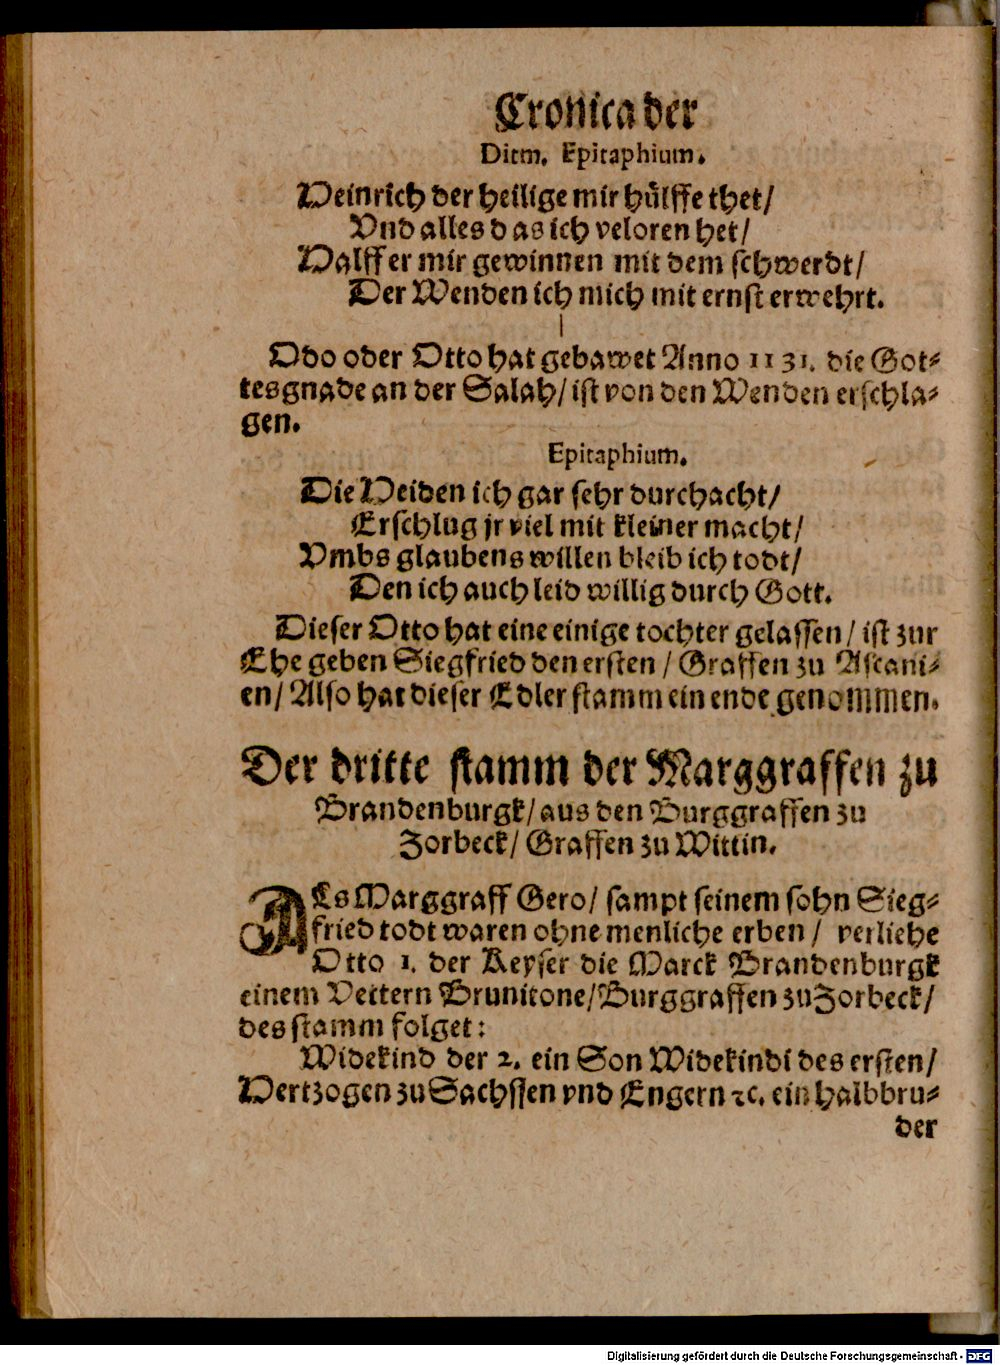 Cronica der
Ditm. Epitaphium.
Heinrich der heilige mir hülffe thet/
Vnd alles das ich veloren het/
Halff er mir gewinnen mit dem schwerdt/
Der Wenden ich mich mit ernst erwehrt.
Odo oder Otto hat gebawet Anno 1131. die Got-
tesgnade an der Salah/ ist von den Wenden erschla-
gen.
Epitaphium.
Die Heiden ich gar sehr durchacht/
Erschlug jr viel mit kleiner macht/
Vmbs glaubens willen bleib ich todt/
Den ich auch leid willig durch Gott.
Dieser Otto hat eine einige tochter gelassen/ ist zur
Ehe geben Siegfried den ersten/ Graffen zu Ascani-
en/ Also hat dieser Edler stamm ein ende genommen.
Der dritte stamm der Marggraffen zu
Brandenburgk/ aus den Burggraffen zu
Zorbeck/ Graffen zu Wittin.
ALs Marggraff Gero/ sampt seinem sohn Sieg-
fried todt waren ohne menliche erben/ verliehe
Otto 1. der Keyser die Marck Brandenburgk
einem Vettern Brunitone/ Burggraffen zu Zorbeck/
des stamm folget:
Widekind der 2. ein Son Widekindi des ersten/
Hertzogen zu Sachssen vnd Engern ꝛc. ein halbbru-
der
Digitalisierung gefördert durch die Deutsche Forschungsgemeinschaft - DFG